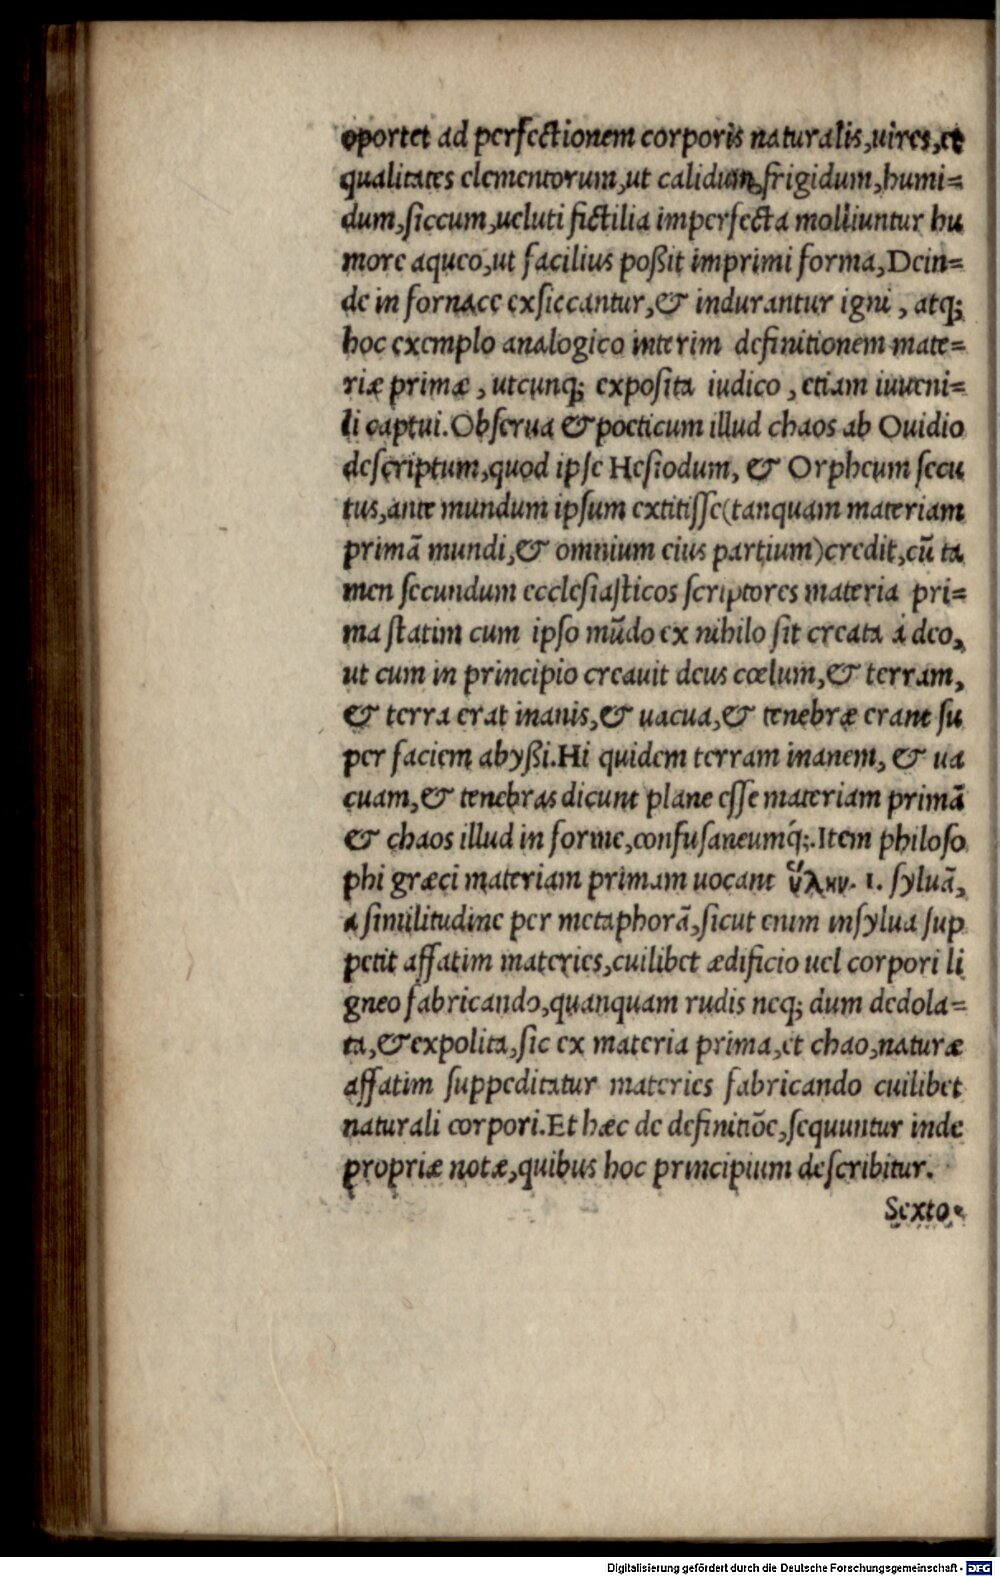 oportet ad perfectionem corporis naturalis,uires,et
qualitates elementorum,ut calidum,frigidum,humi=
dum,siccum,ueluti fictilia imperfecta molliuntur hu
more aqueo,ut facilius poßit imprimi forma,Dein=
de in fornace exsiccantur,& indurantur igni , atq;
hoc exemplo analogico interim definitionem mate=
riæ primæ , utcunq; exposita iudico , etiam iuueni=
li captui.Obserua & poeticum illud chaos ab Ouidio
descriptum,quod ipse Hesiodum, & Orpheum secu
tus,ante mundum ipsum extitisse(tanquam materiam
primã mundi,& omnium eius partium)credit,cũ ta
men secundum ecclesiasticos scriptores materia pri=
ma statim cum ipso mũdo ex nihilo sit creata à deo,
ut cum in principio creauit deus cœlum,& terram,
& terra erat inanis,& uacua,& tenebræ erant su
per faciem abyßi.Hi quidem terram inanem, & ua
cuam,& tenebras dicunt plane esse materiam primã
& chaos illud in forme,confusaneumq́;.Item philoso
phi græci materiam primam uocant ὕλην. 1. syluã,
a similitudine per metaphorã,sicut enim in sylua sup
petit affatim materies,cuilibet ædificio uel corpori li
gneo fabricando,quanquam rudis neq; dum dedola=
ta,& expolita,sic ex materia prima,et chao,naturæ
affatim suppeditatur materies fabricando cuilibet
naturali corpori.Et hæc de definitiõe,sequuntur inde
propriæ notæ,quibus hoc principium describitur.
Sexto.
Digitalisierung gefördert durch die Deutsche Forschungsgemeinschaft - DFG